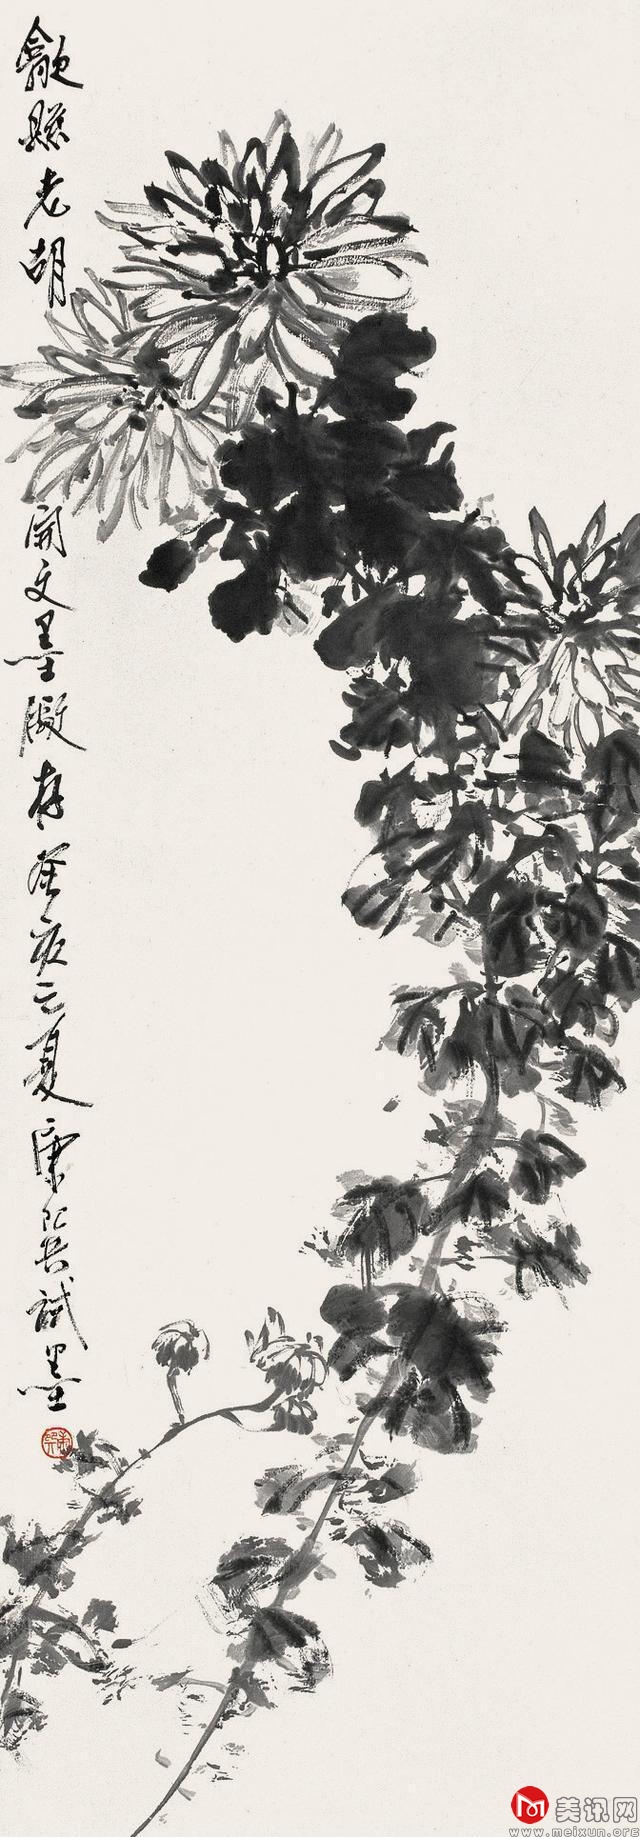 歙縣老胡開文墨厰存癸亥之夏康試墨
美讯网
www.meixun.org